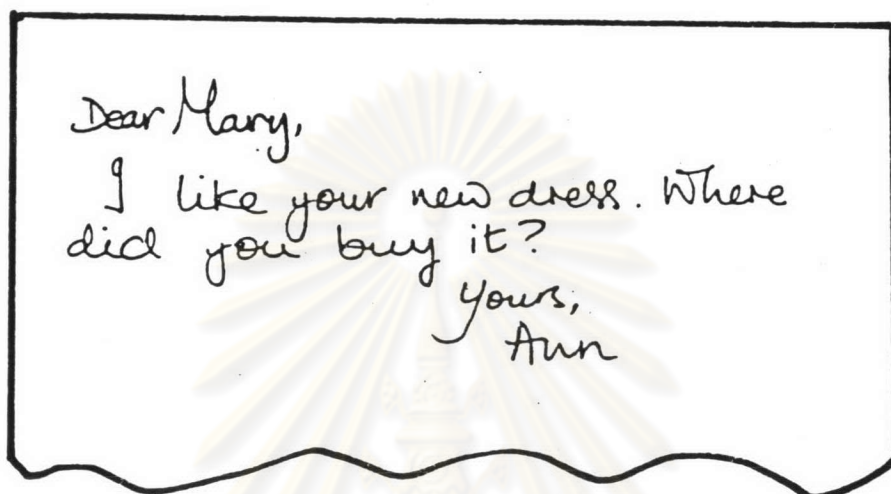 Dear Mary,
I like your new dress. Where
did you buy it?
Yours,
Ann